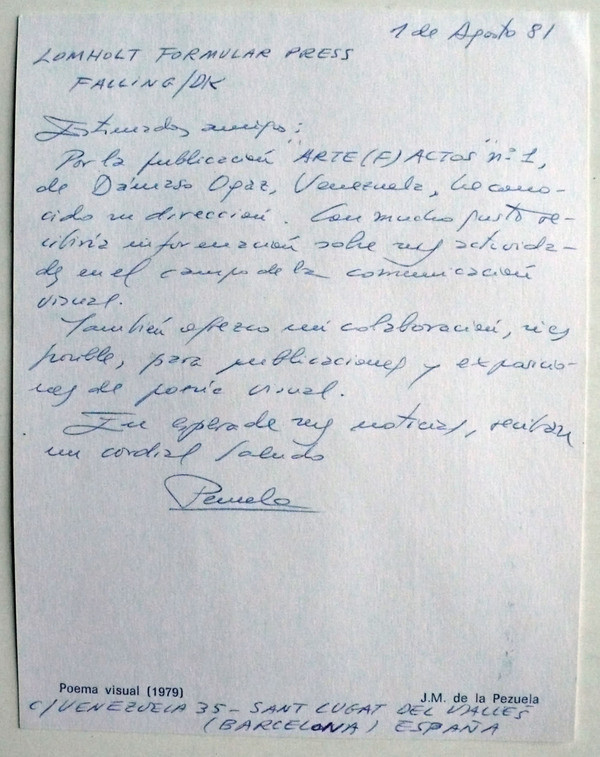 1 de Agosto 81
LOMHOLT FORMULAR PRESS
FALLING/DK
Estimados amigos:
Por la publicación "ARTE(F)ACTOS" nº 1,
de Dámaso Ogaz, Venezuela, he cono-
cido su dirección. Con mucho gusto re-
cibiría información sobre sus activida-
des en el campo de la comunicación
visual.
También ofrezco mi colaboración, si es
posible, para publicaciones y exposicio-
nes de poesía visual.
En espera de sus noticias, reciban
un cordial saludo
Pezuela
Poema visual (1979)
J.M. de la Pezuela
C/VENEZUELA 35 - SANT CUGAT DEL VALLÉS
(BARCELONA) ESPAÑA